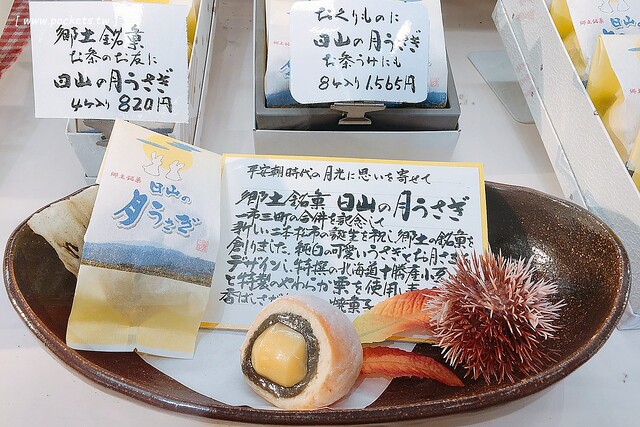 www.pockets.tw
郷土銘菓
お茶のお友に
日山の月うさぎ
4ヶ入り 820円
おくりものに
日山の月うさぎ
お茶うけにも
8ヶ入り 1,565円
郷土銘菓
日山の
月うさぎ
平安朝時代の月光に思いを寄せて
郷土銘菓 日山の月うさぎ
一市三町の合併を記念して
新しい二本松市の誕生を祝し郷土の銘菓を
創りました。純白の可愛いうさぎとお月さまを
デザインし、特撰の北海道十勝産小豆
と特製のやわらか栗を使用し
香ばしさが
焼菓子